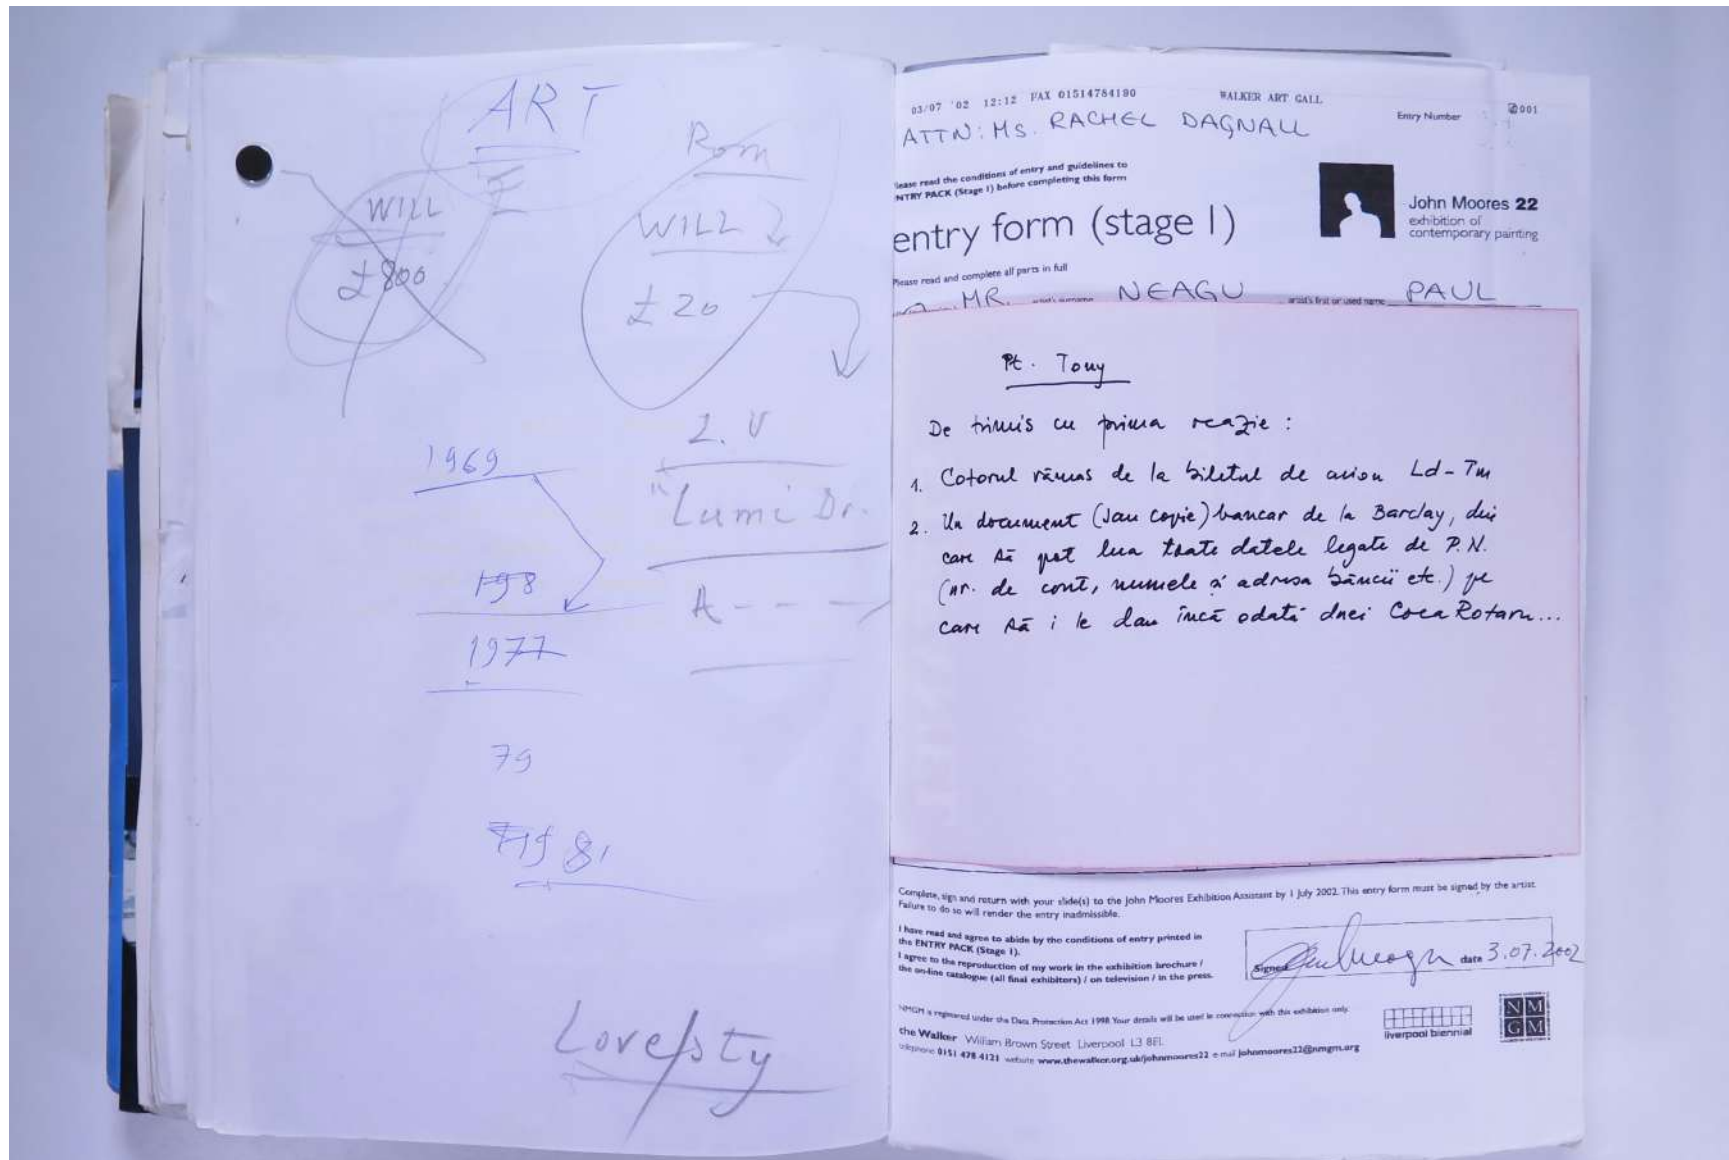 ART
WILL
£800
Rom
WILL
£20
1969
198
1977
79
1981
2. V
Lumi Dr.
A - - -
Lovepsty
03/07 '02 12:12 FAX 01514784190 WALKER ART GALL 001
ATTN: MS. RACHEL DAGNALL
Entry Number
Please read the conditions of entry and guidelines to
ENTRY PACK (Stage 1) before completing this form
entry form (stage 1)
John Moores 22
exhibition of
contemporary painting
Please read and complete all parts in full
MR. artist's surname NEAGU artist's first or used name PAUL
Pt. Tony
De trimis cu prima ocazie :
1. Cotorul rămas de la biletul de avion Ld - Tm
2. Un document (sau copie) bancar de la Barclay, din
care să pot lua toate datele legate de P.N.
(nr. de cont, numele și adresa băncii etc.) pe
care să i le dau încă odată dnei Coca Rotaru...
Complete, sign and return with your slide(s) to the John Moores Exhibition Assistant by 1 July 2002. This entry form must be signed by the artist.
Failure to do so will render the entry inadmissible.
I have read and agree to abide by the conditions of entry printed in
the ENTRY PACK (Stage 1).
I agree to the reproduction of my work in the exhibition brochure /
the on-line catalogue (all final exhibitors) / on television / in the press.
Signed date 3.07.2002
NMGM is registered under the Data Protection Act 1998 Your details will be used in connection with this exhibition only.
the Walker William Brown Street Liverpool L3 8EL
telephone 0151 478 4121 website www.thewalker.org.uk/johnmoores22 e-mail johnmoores22@nmgm.org
liverpool biennial
NM
GM